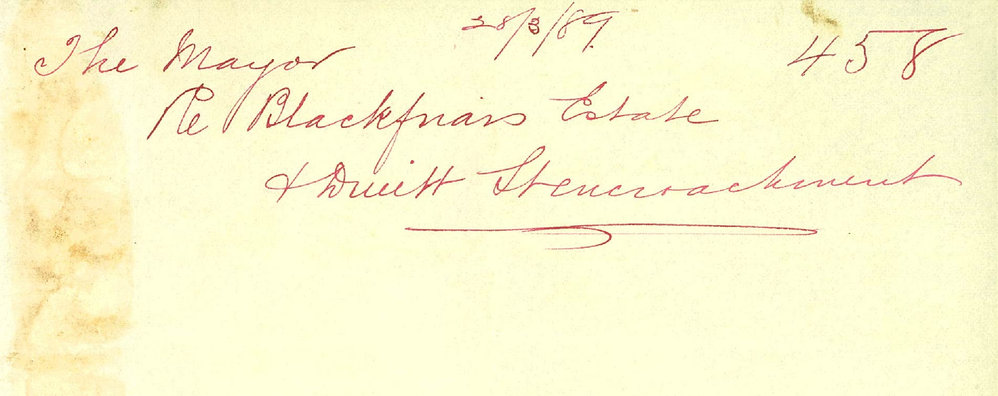 28/3/89.
The Mayor 458
Re Blackfriars Estate
& Dwitt St encroachment